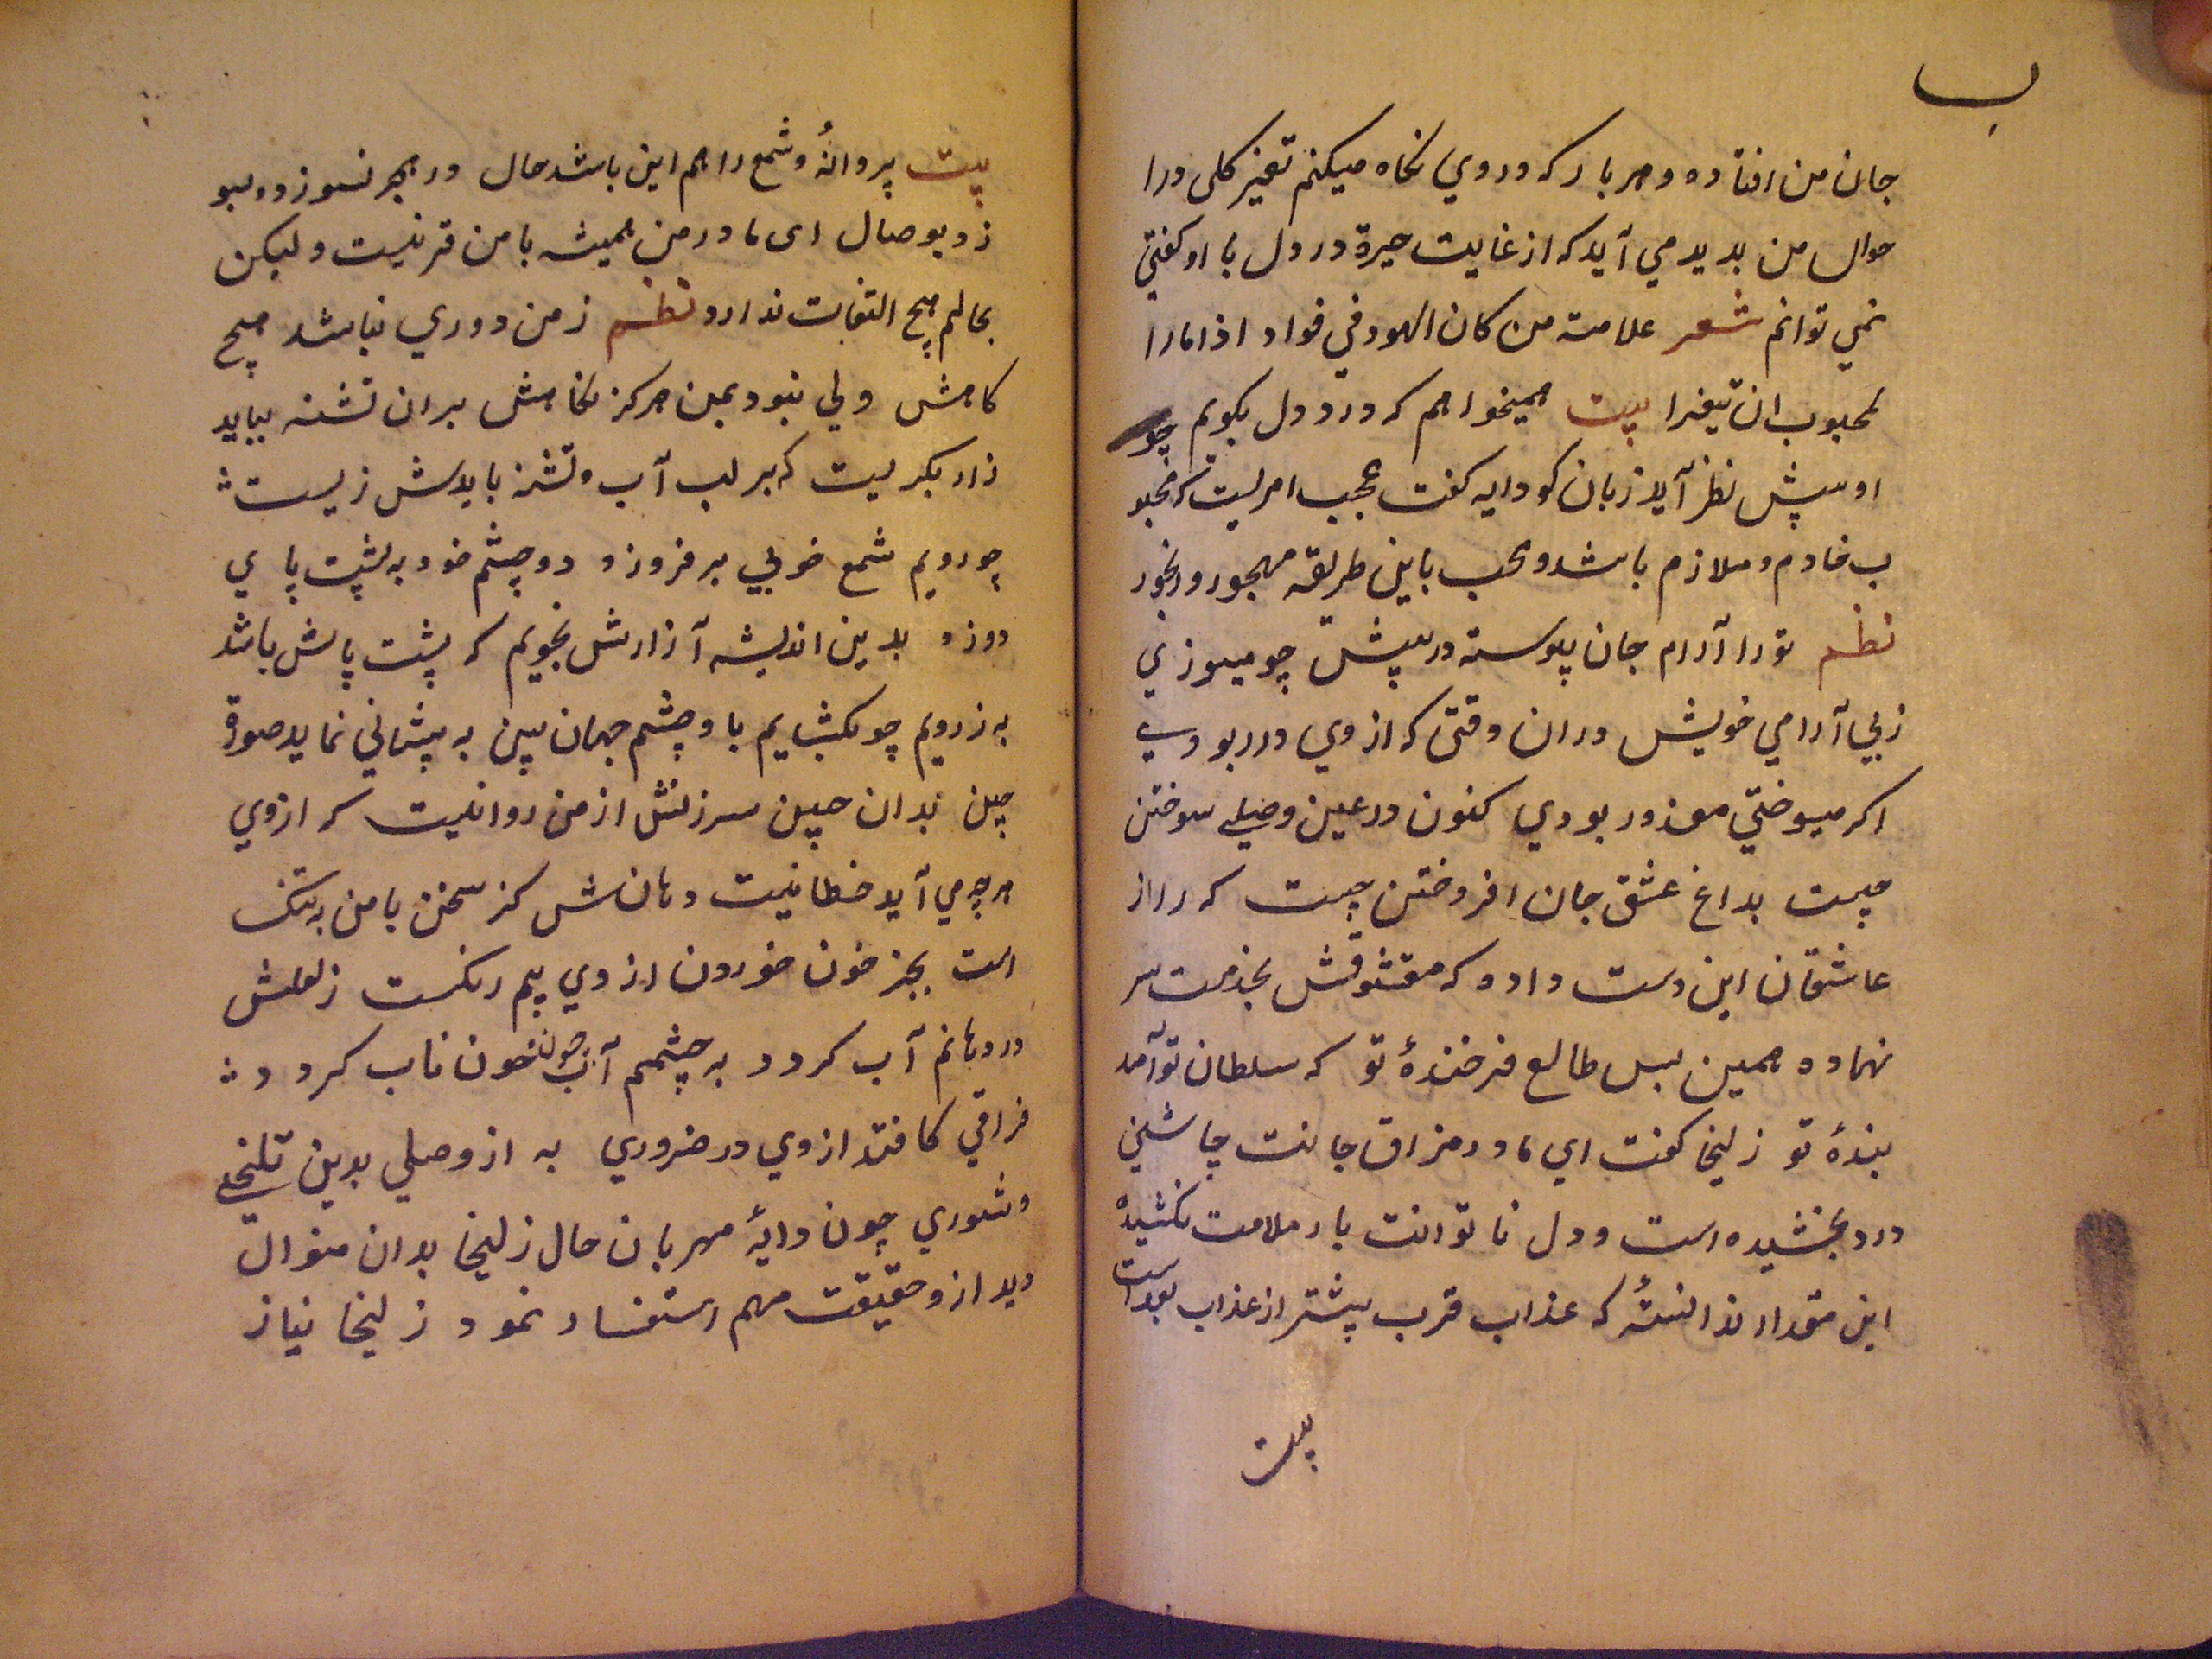 ب
جان من افتاده و هر بار که در وي نکاه میکنم تغیر کلی در ا
حوال من بدید مي آید که از غایت حیرة درد دل با او کفتن
نمي توانم شعر علامة من کان الهوا في فواد اذا ما را
لمحبوب ان تیغیرا بیت همیخواهم که درد دل بکویم چو
او پیش نظر آید زبان کو دایه کفت عجب امریست که محبو
ب خادم و ملازم باشد و محب باین طریقه مهجور و رنجور
نظم تو را آرام جان پیوسته در پیش چو میسوزي
ز بي آرامي خویش در ان وقتی که از وي دور بودي
اکر میسوختي معذور بودي کنون در عین وصلی سوختن
چیست بداغ عشق جان افروختن چیست که را از
عاشقان این دست داده که معشوقش بخدمت سر
نهاده همین بس طالع فرخندهٔ تو که سلطان تو آمد
بندهٔ تو زلیخا کفت اي مادر مذاق جانت چاشني
درد نچشیده است و دل ناتوانت بار ملامت نکشیده
این مقدار ندانستهٔ که عذاب قرب بیشتر از عذاب بعد است
بیت
بیت پروانهٔ و شمع را هم این باشد حال در هجر نسوزد و بسو
زد بوصال ای مادر من همیشه با من قرینست و لیکن
بحالم هیچ التفات ندارد نظم ز من دوري نباشد هیچ
کاهش ولي نبود بمن هرکز نکاهش بران تشنه بباید
زار بکریست که بر لب آب و تشنه بایدش زیست
چو رویم شمع خوبي بر فروزد دو چشم خود به پشت پا ي
دوزد بدین اندیشه آزارش نجویم که پشت پاش باشد
به ز رویم چو بکشایم باو چشم جهان بین به پیشاني نماید صورة
چین بدان چین سرزنش از من روا نیست که از وي
هر چه مي آید خطا نیست دهانش کز سخن با من به تنک
است بجز خون خوردن از وي بیم رنکست ز لعلش
در دهانم آب کردد به چشمم آب چون خون ناب کردد
فراقي کافتد از وي در ضروري به از وصلي بدین تلخي
و شوري چون دایهٔ مهربان حال زلیخا بدان منوال
دید از و حقیقت مهم استفسار نمود زلیخا نیاز